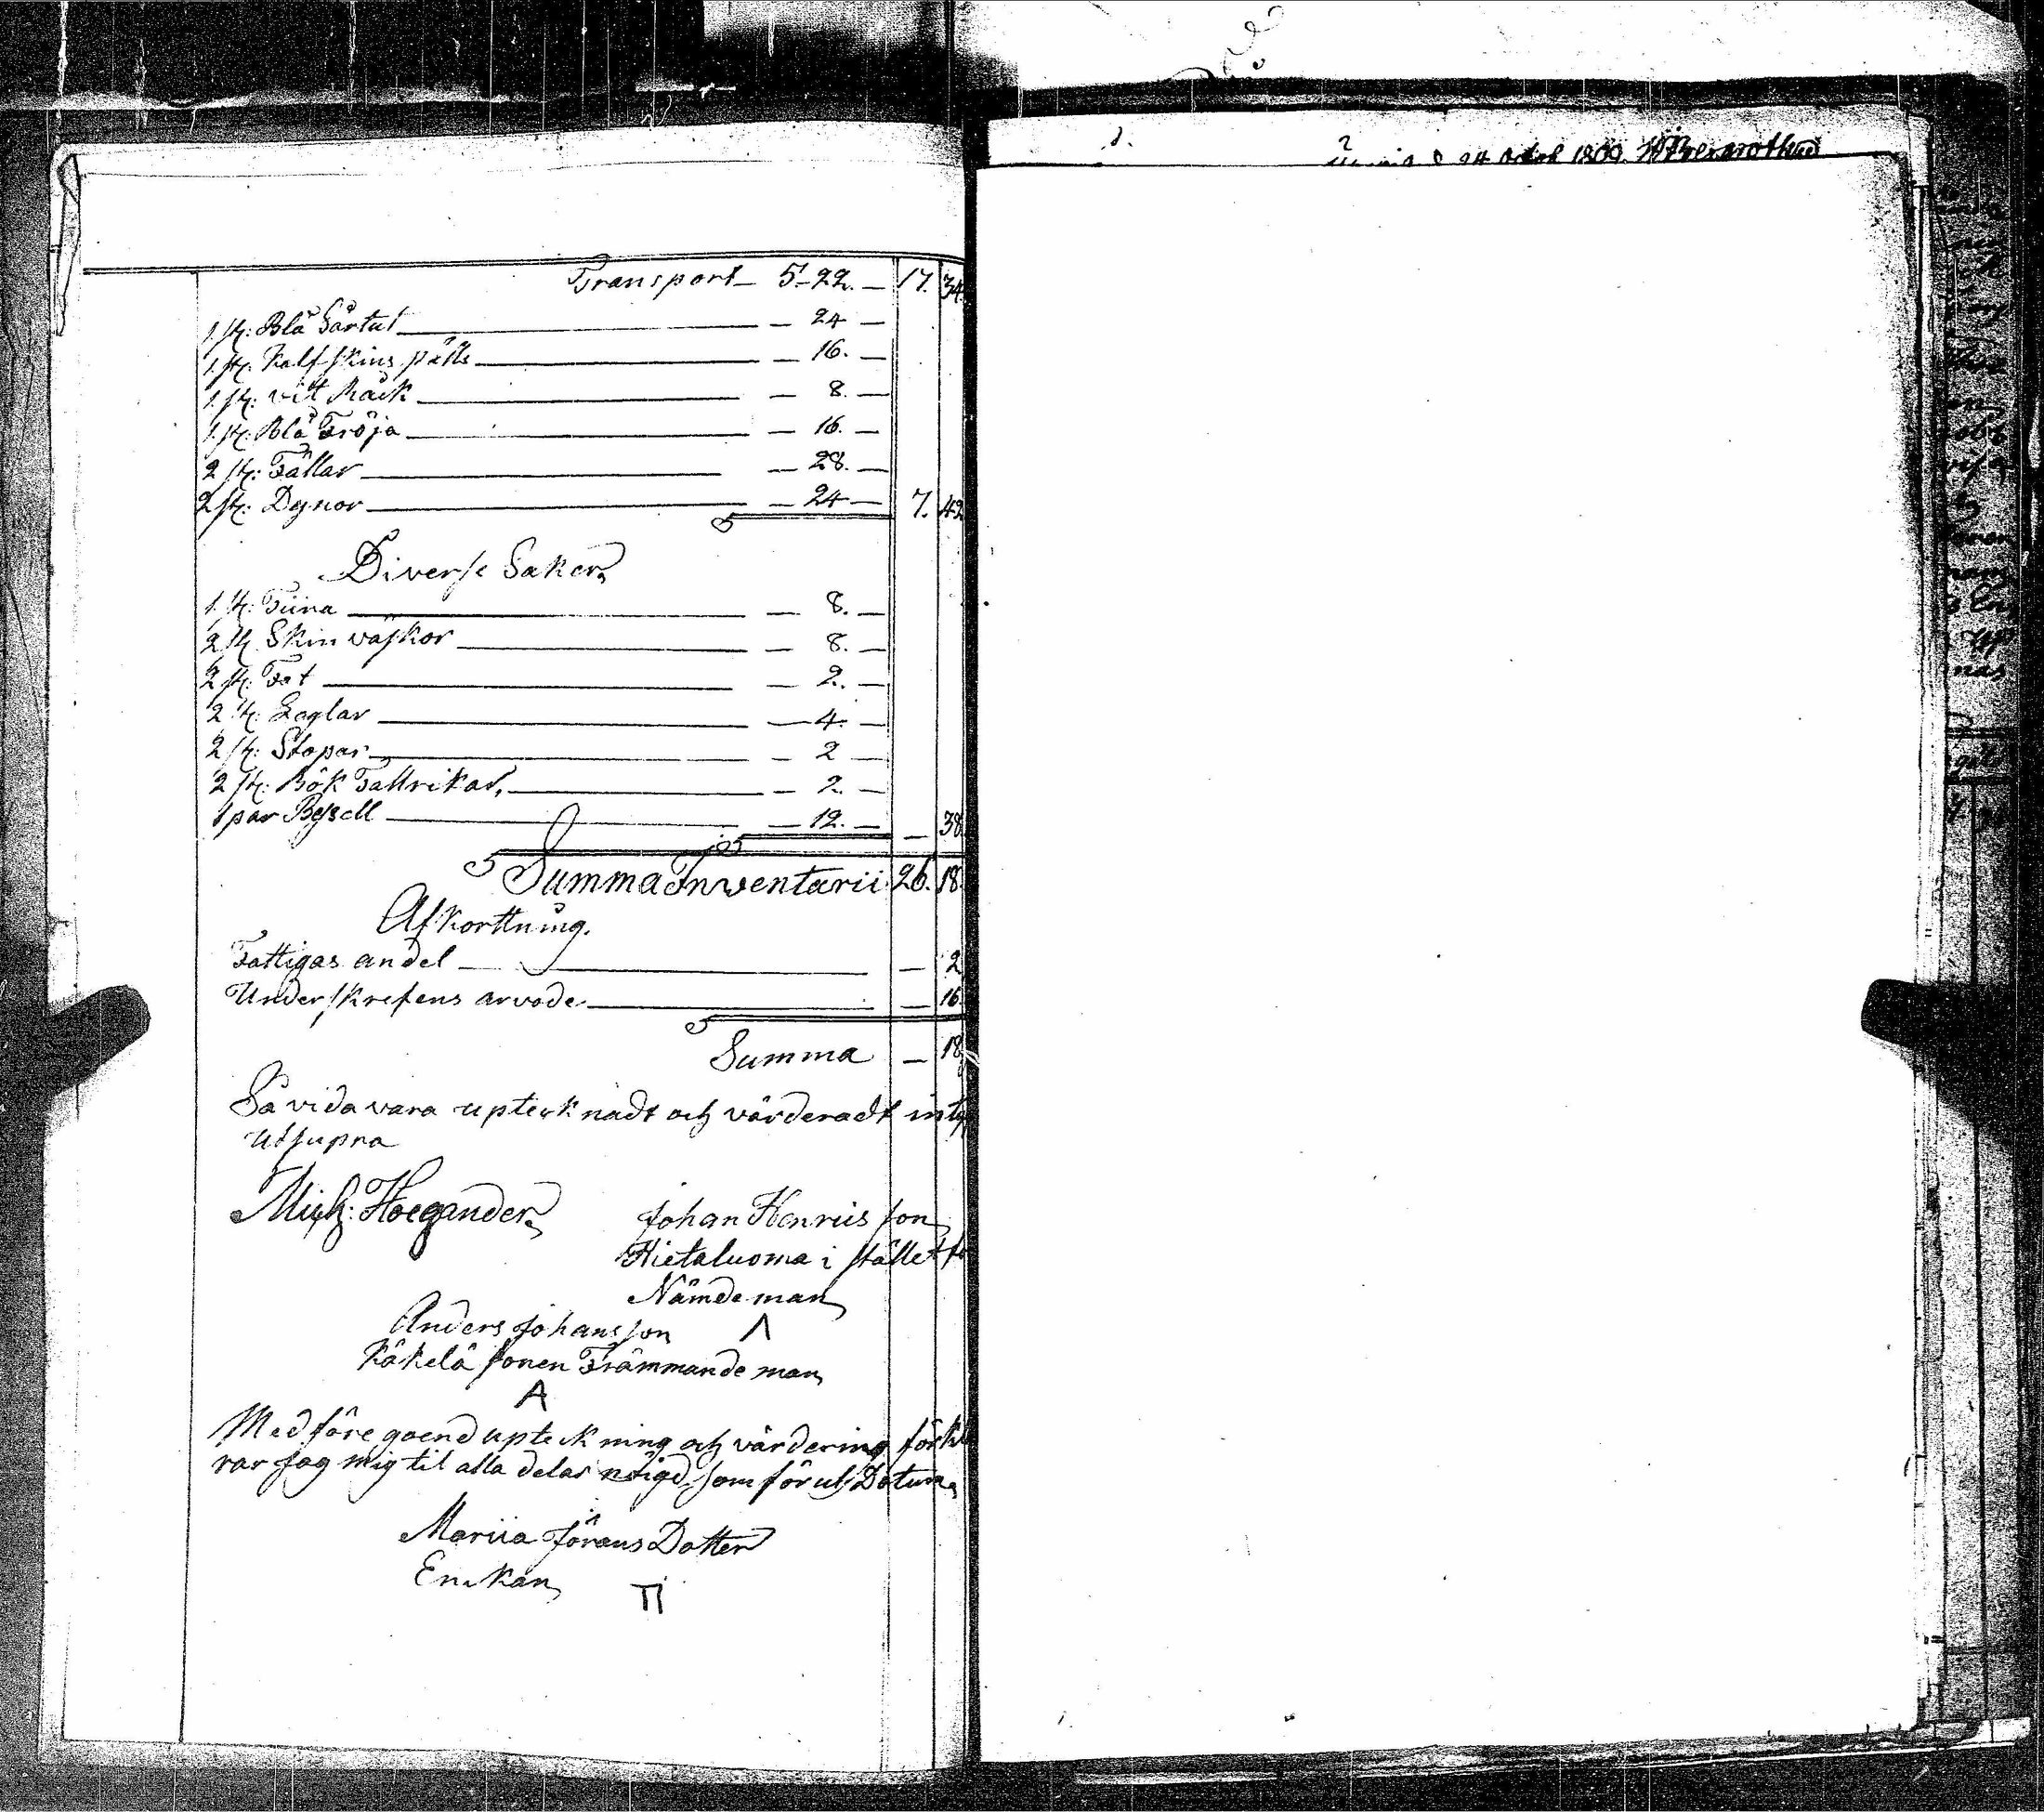 Transport 5-22. — 17. 34.
1 st: Blå Sårtut — 24 —
1 st: Kalfskins päls — 16. —
1 st: vit Råck — 8. —
1 st: Blå Tröja — 16. —
2 st: Fällar — 28. —
2 st: Dynor — 24 — 7. 42
Diverse Saker,
1 st: Tiina — 8. —
2 st Skin väskor — 8. —
2 st: Fat — 2. —
2 st: Laglar — 4. —
2 st: Stopar — 2 —
2 st: Bök Tallrikar, — 2. —
1 par Bessell — 12. — — 38
Summa Inventarii 26. 18.
Afkorttning.
Fattigas andel — 2
Underskrefens arvode — 16
Summa — 18
Så vida vara upteknadt och värderadt
Utsupra
Mich: Hoegander
Johan Henriis son
Hietaluoma i stället
Nämdeman
Anders Johansson Λ
Käkelä sonen Främmande man
A
Med före goend upteckning och värdering
rar jag mig til alla delar nöigd, som förut Datum
Mariia Jörans Dotter
Enckan Π
24 1800